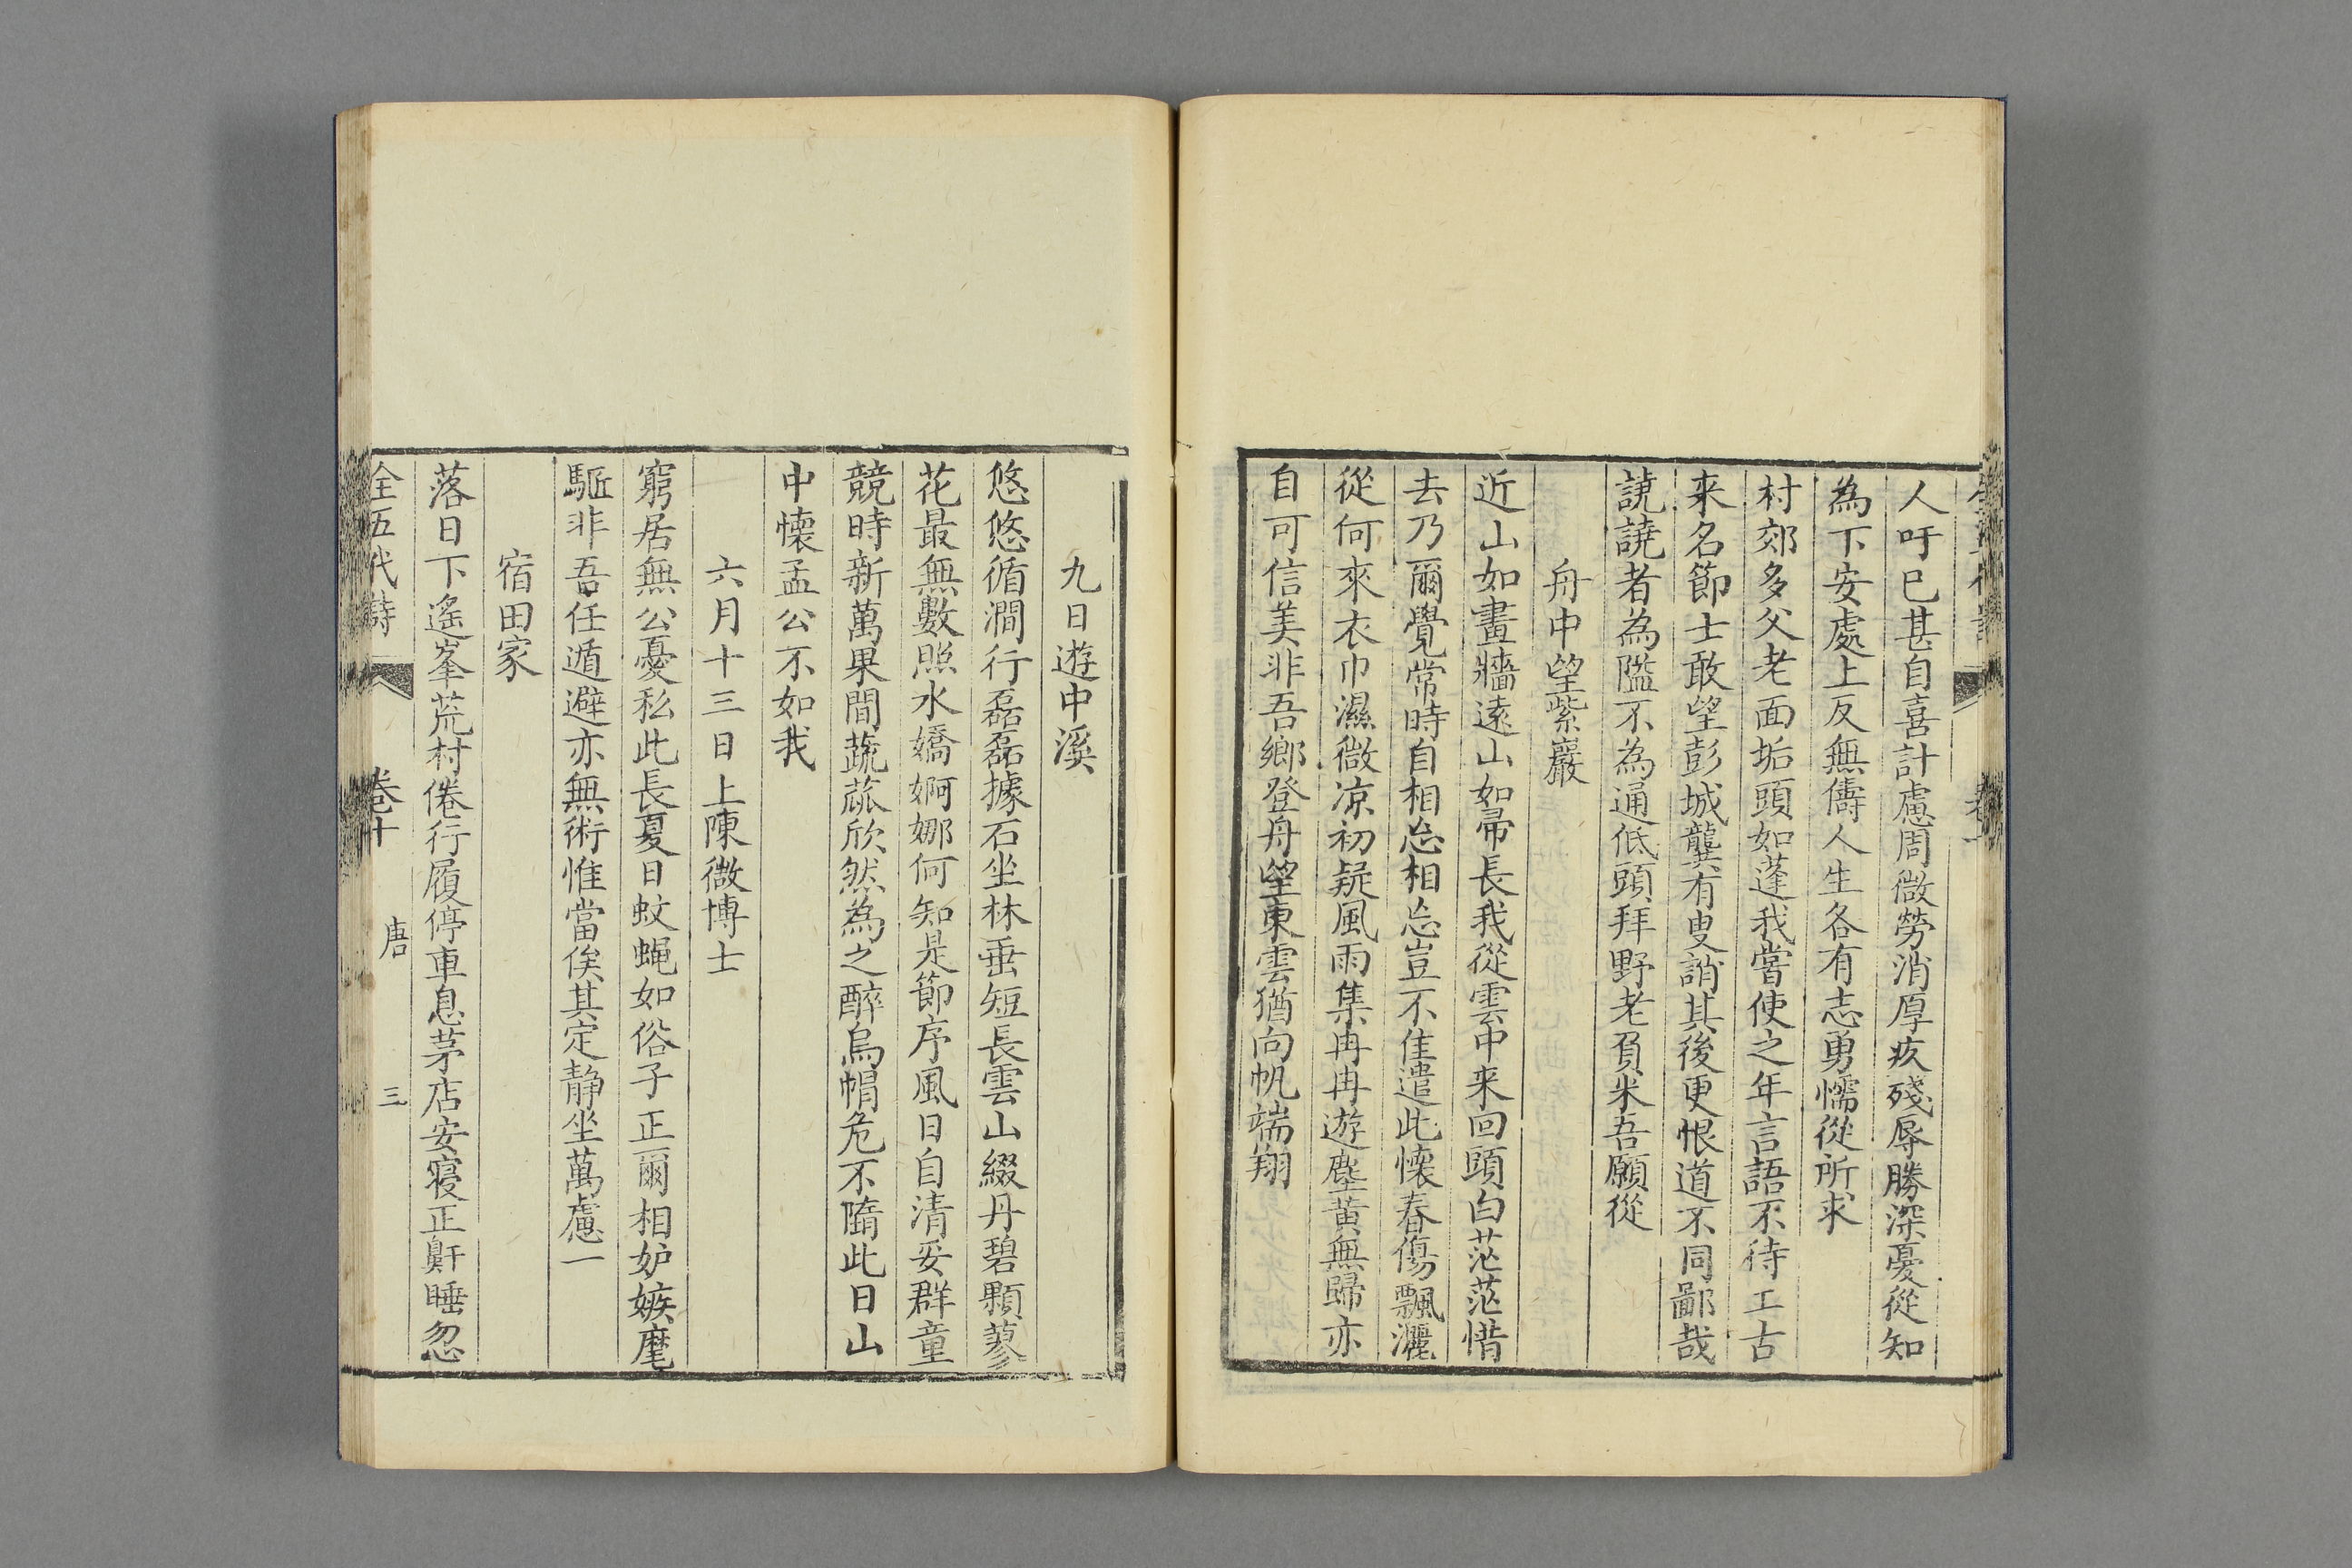 人吁已甚自喜計慮周微勞消厚疚殘辱勝深憂從知
為下安處上反無儔人生各有志勇懦從所求
村郊多父老面垢頭如蓬我嘗使之年言語不待工古
来名節士敢望彭城龔有叟誚其後更恨道不同鄙哉
譊譊者為隘不為通低頭拜野老負米吾願從
舟中望紫巖
近山如畫牆遠山如帚長我從雲中来回頭白茫茫惜
去乃爾覺常時自相忘相忘豈不佳遣此懷春傷飄灑
從何來衣巾濕微凉初疑風雨集冉冉遊塵黃無歸亦
自可信美非吾鄉登舟望東雲猶向帆端翔
九日遊中溪
悠悠循澗行磊磊據石坐林垂短長雲山綴丹碧顆蓼
花最無數照水嬌婀娜何知是節序風日自清妥群童
競時新萬果間蔬蓏欣然為之醉烏帽危不隋此日山
中懷孟公不如我
六月十三日上陳微博士
窮居無公憂私此長夏日蚊蝇如俗子正爾相妒嫉麾
驅非吾任遁避亦無術惟當俟其定静坐萬慮一
宿田家
落日下遙峯荒村倦行履停車息茅店安寝正鼾睡忽
全五代詩 卷十 唐 三